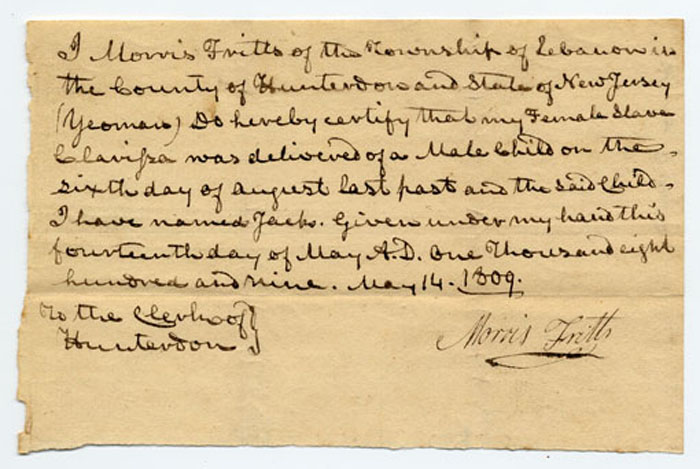 I Morris Fritts of the Township of Lebanon in
the County of Hunterdon and State of New Jersey
(Yeoman) Do hereby certify that my Female Slave
Clarissa was delivered of a Male Child on the
sixth day of august last past and the said Child
I have named Jack. Given under my hand this
fourteenth day of May A.D. One Thousand eight
hundred and nine. May 14. 1809.
To the Clerk of }
Hunterdon }
Morris Fritts